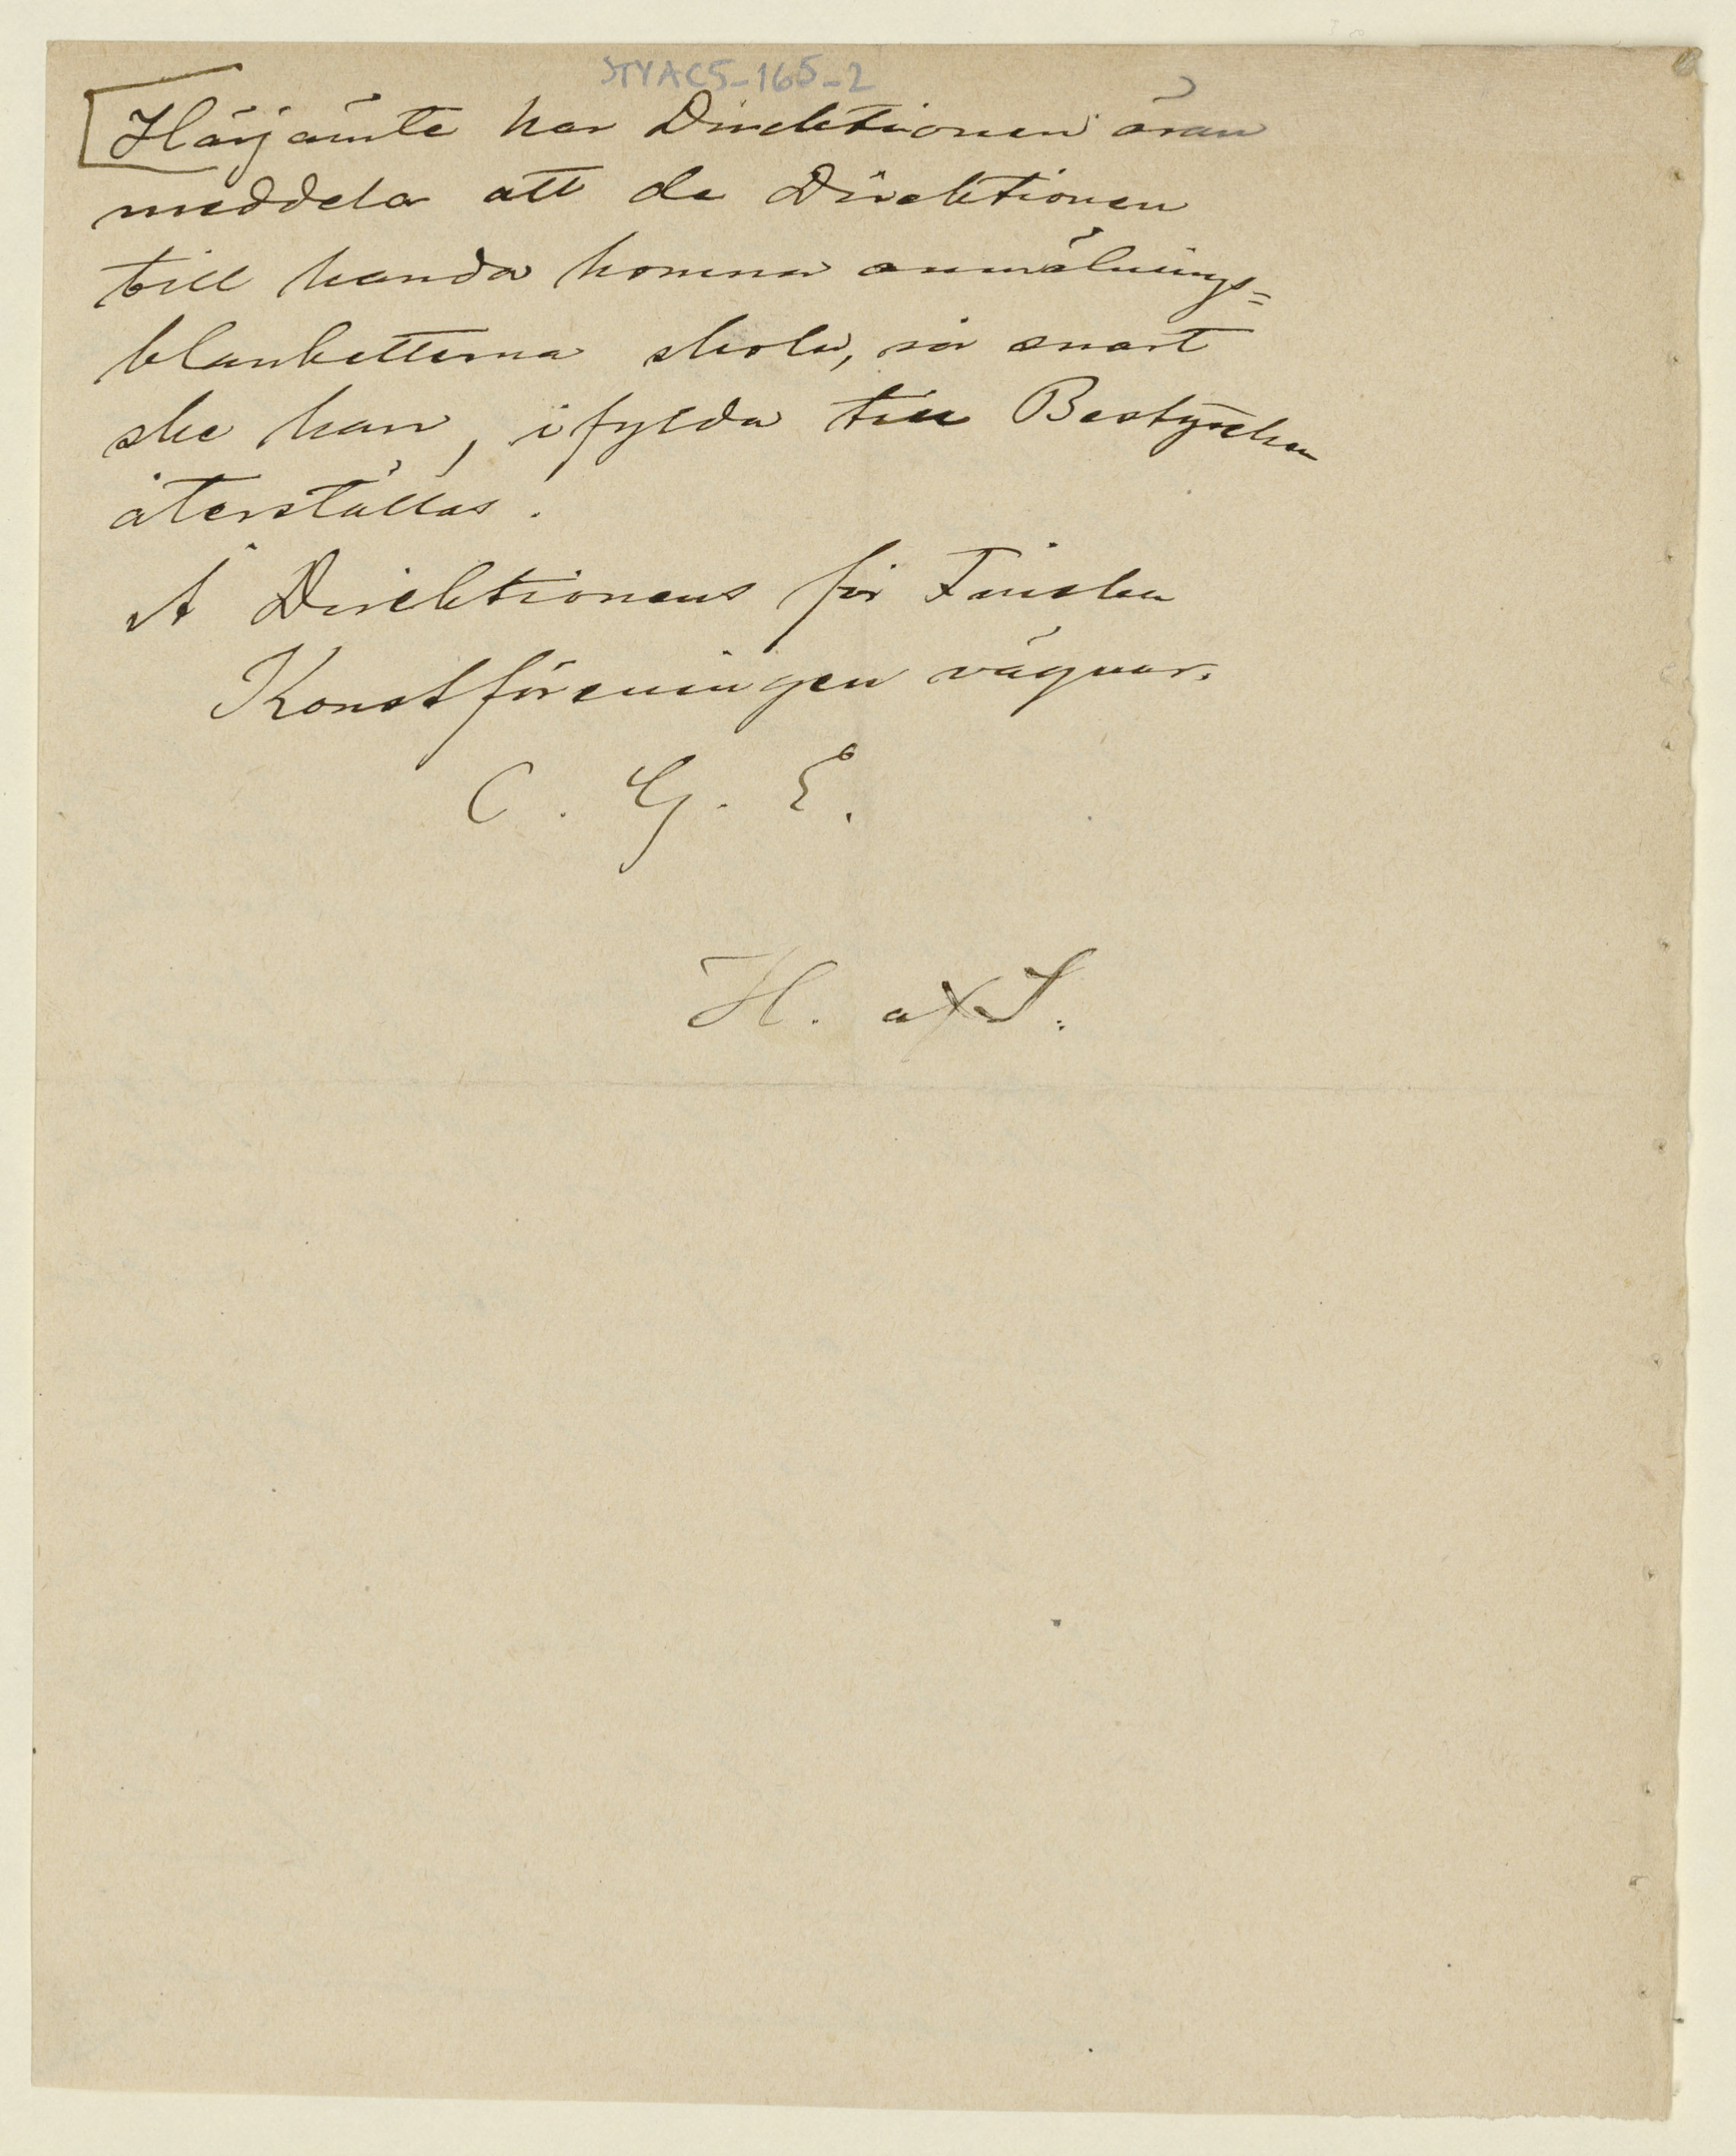 STYAC5-165-2
Härjämte har Direktionen äran
meddela att de Direktionen
till handa komna anmälnings=
blanketterna skola, så snart
ske kan, ifylda till Bestyrelsen
återställas.
Å Direktionens för Finska
Konstföreningen vägnar.
C. G. E.
H. af S.